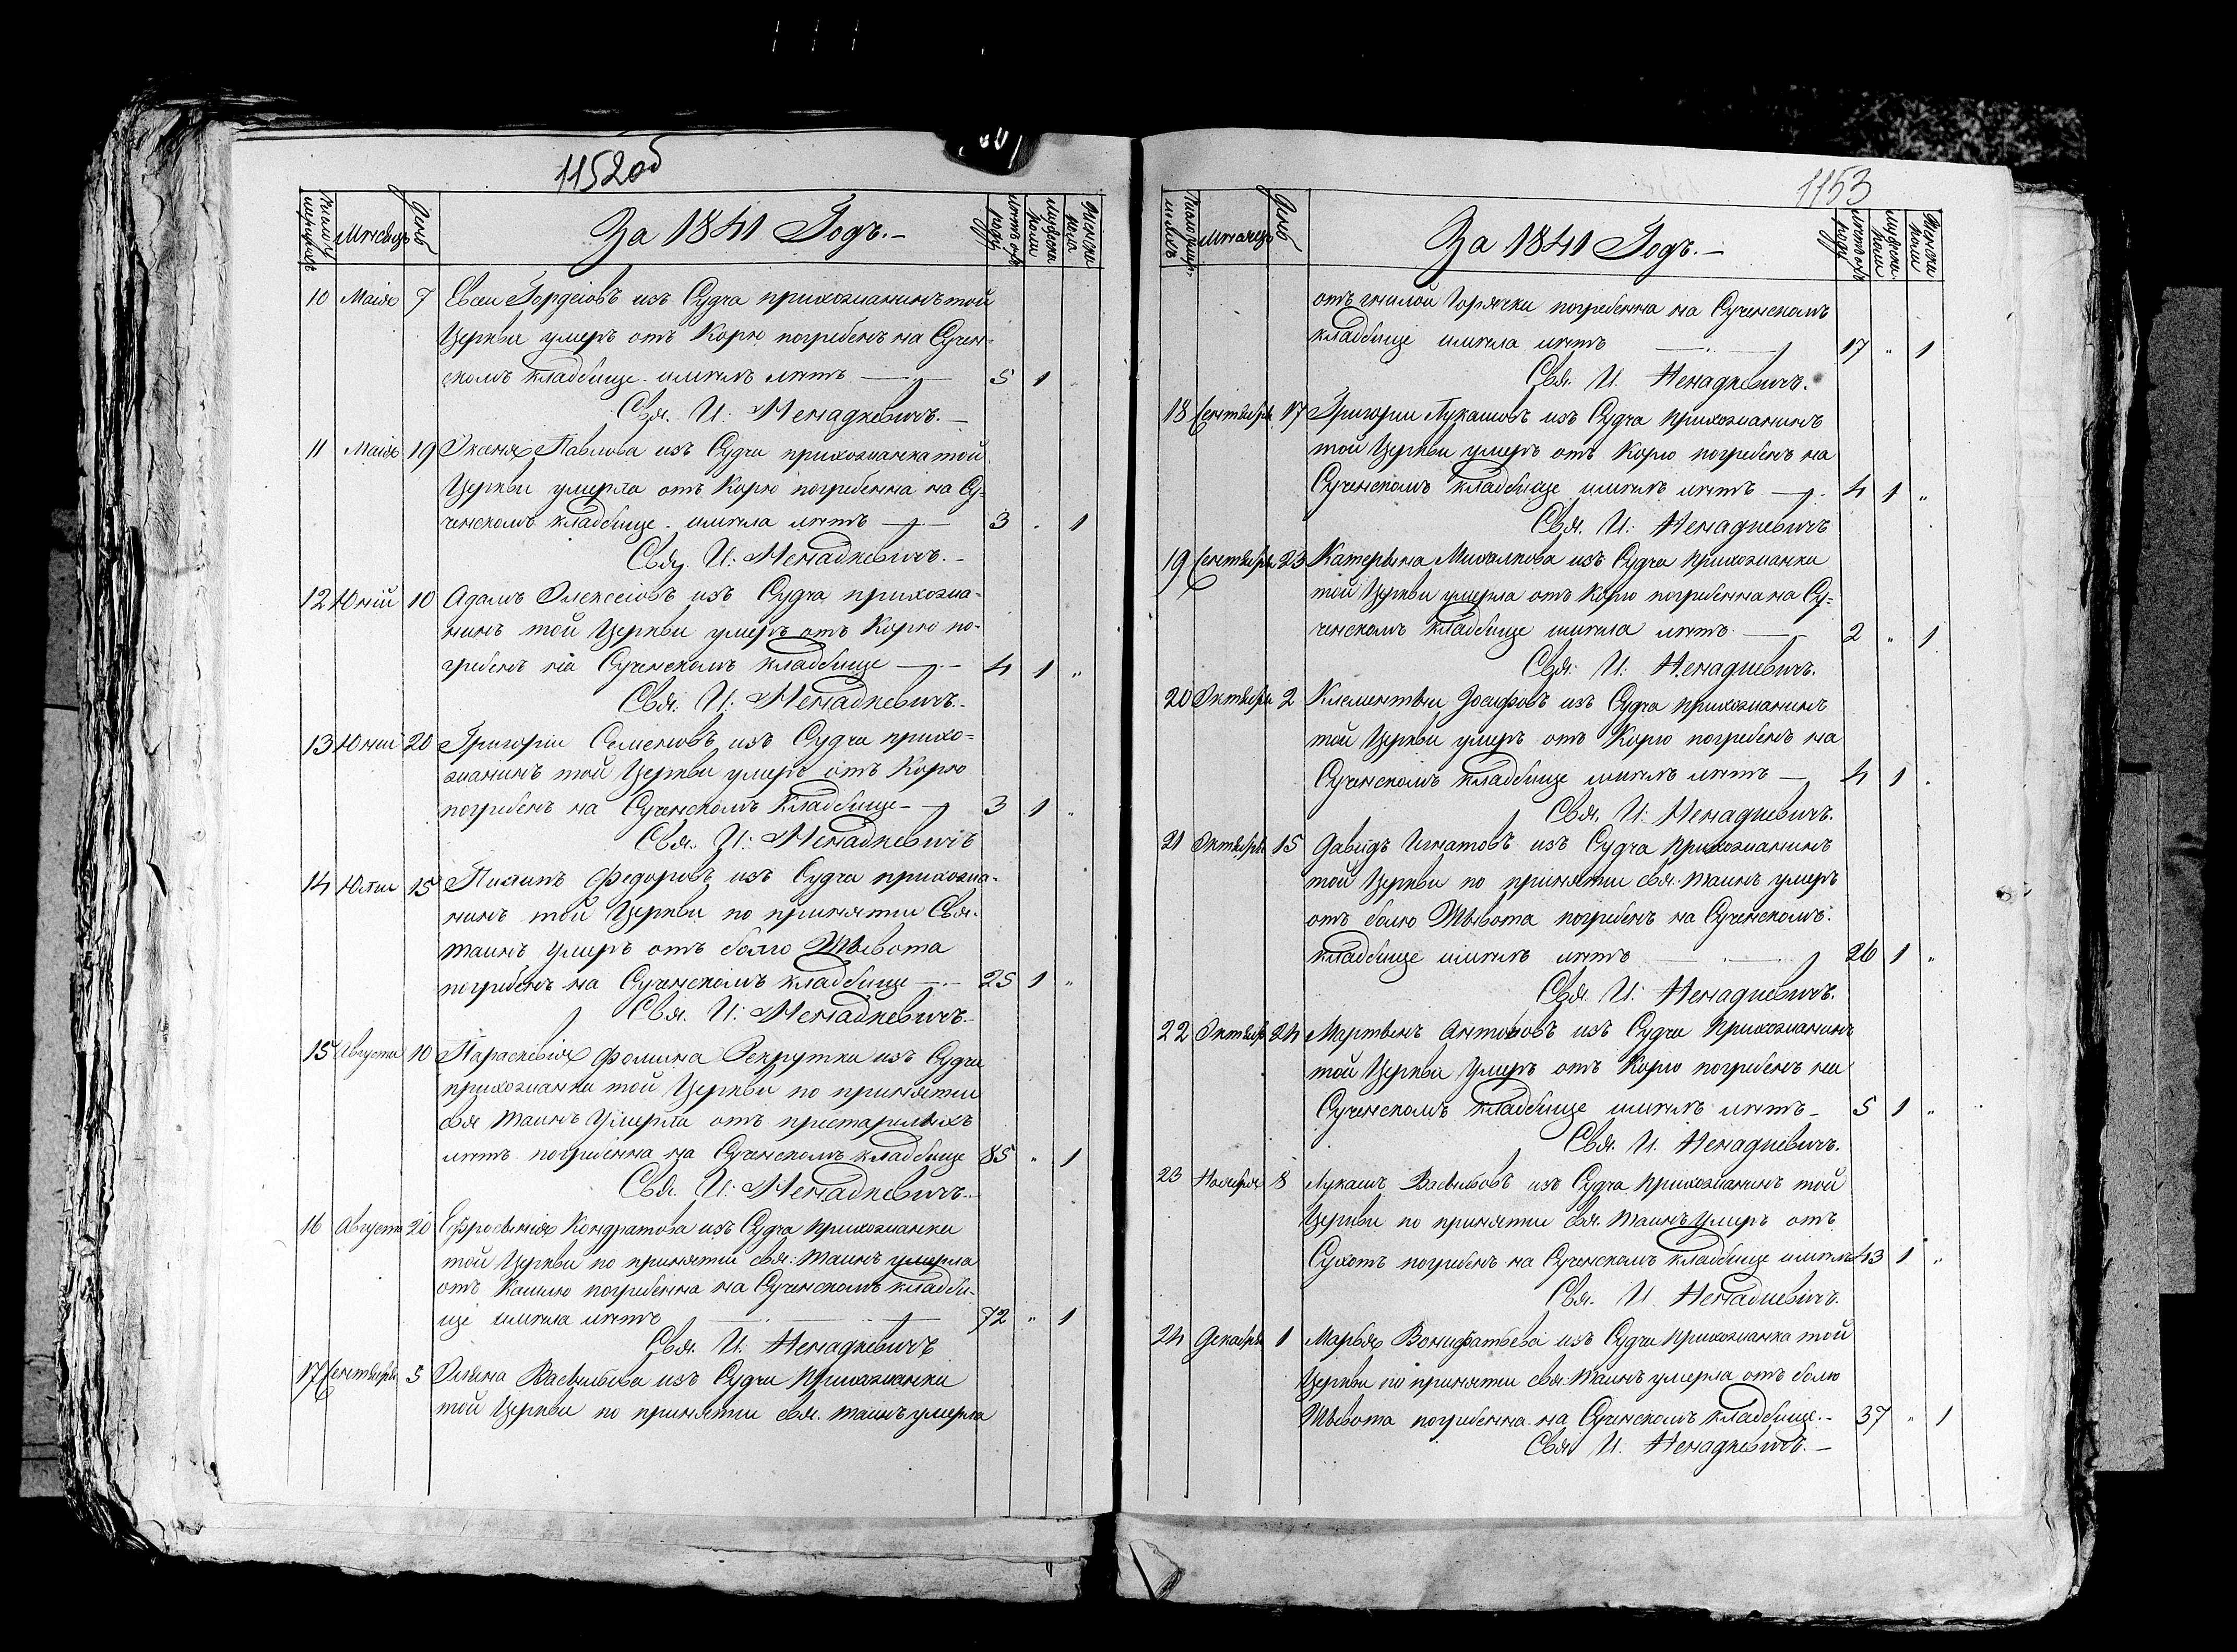 1152об
Месяцъ
День
За 1841 Годъ.-
10 Маія 7 Гордеіовъ изъ Судча прихожанинъ той
Церкви умеръ отъ Корю погребенъ на Сучен-
скомъ кладбище имелъ летъ 5 1
Свя. И: Ненадкевичъ.-
11 Маія 19 Оксенія Павлова изъ Судча прихожанка той
Церкви умерла отъ Корю погребенна на Су-
ченскомъ кладбище имела летъ 3 „ 1
Свя. И: Ненадкевичъ.-
12 Юній 10 Адамъ Олексеіовъ изъ Судча прихожа-
нинъ той Церкви умеръ отъ Корю по-
гребенъ на Сученскомъ кладбище 4 1 „
Свя. И: Ненадкевичъ.-
13 Юній 20 Григории Семеновъ изъ Судча прихо-
жанинъ той Церкви умеръ отъ Корю
погребенъ на Сученскомъ Кладбище- 3 1 „
Свя. И: Ненадкевичъ
14 Юлии 15 Федоровъ изъ Судча прихожа-
нинъ той Церкви по принятии Свя.
таинъ умеръ отъ болю Живота
погребенъ на Сученскомъ кладбище 25 1 „
Свя. И: Ненадкевичъ.
15 Августа 10 Параскевія Фомина Рекрутка изъ Судча
прихожанка той Церкви по принятии
свя таинъ Умерла отъ престарелыхъ
летъ погребенна на Сученскомъ кладбище 85 „ 1
Свя. И: Ненадкевичъ.
16 Августа 20 Ефросынія Кондратова изъ Судча прихожанка
той Церкви по принятии свя: таинъ умерла
отъ Кашлю погребенна на Сученскомъ кладби-
ще имела летъ 72 „ 1
Свя. И. Ненадкевичъ
17 Сентября 5 Олена Васильева изъ Судча Прихожанка
той Церкви по принятии свя. таинъ умерла
1153
Месяцъ
День
За 1841 Годъ.-
отъ гнилой Горячки погребенна на Сученскомъ
кладбище имела летъ 17 „ 1
Свя. И. Ненадкевичъ.
18 Сентября 17 Григории Лукашовъ изъ Судча прихожанинъ
той Церкви умеръ отъ Корю погребенъ на
Сученскомъ кладбище имелъ летъ 4 1 „
Свя. И: Ненадкевичъ
19 Сентября 23 Катерына Михалкова изъ Судча прихожанка
той Церкви умерла отъ Корю погребенна на Су-
ченскомъ кладбище имела летъ 2 „ 1
Свя: И: Ненадкевичъ.
20 Октября 2 Клементыи Иосифовъ изъ Судча прихожанинъ
той Церкви умеръ отъ Корю погребенъ на
Сученскомъ кладбище имелъ летъ 4 1 „
Свя. И: Ненадкевичъ.
21 Октября 15 Давидъ Игнатовъ изъ Судча прихожанинъ
той Церкви по принятии свя. таинъ умеръ
отъ болю Живота погребенъ на Сученскомъ
кладбище имелъ летъ 26 1 „
Свя. И: Ненадкевичъ.
22 Октября 24 Антоновъ изъ Судча Прихожанинъ
той Церкви Умеръ отъ Корю погребенъ на
Сученскомъ кладбище имелъ летъ- 5 1 „
Свя. И. Ненадкевичъ.
23 Ноября 8 Лукашъ Васильовъ изъ Судча Прихожанинъ той
Церкви по принятии свя. таинъ Умеръ отъ
Сухотъ погребенъ на Сученскомъ кладбище имелъ 43 1 „
Свя. И. Ненадкевичъ.
24 Декабря 1 Марья Вонифатьева изъ Судча прихожанка той
Церкви по принятии свя. таинъ умерла отъ болю
Живота погребенна на Сученскомъ кладбище.- 37 „ 1
Свя. И. Ненадкевичъ.-